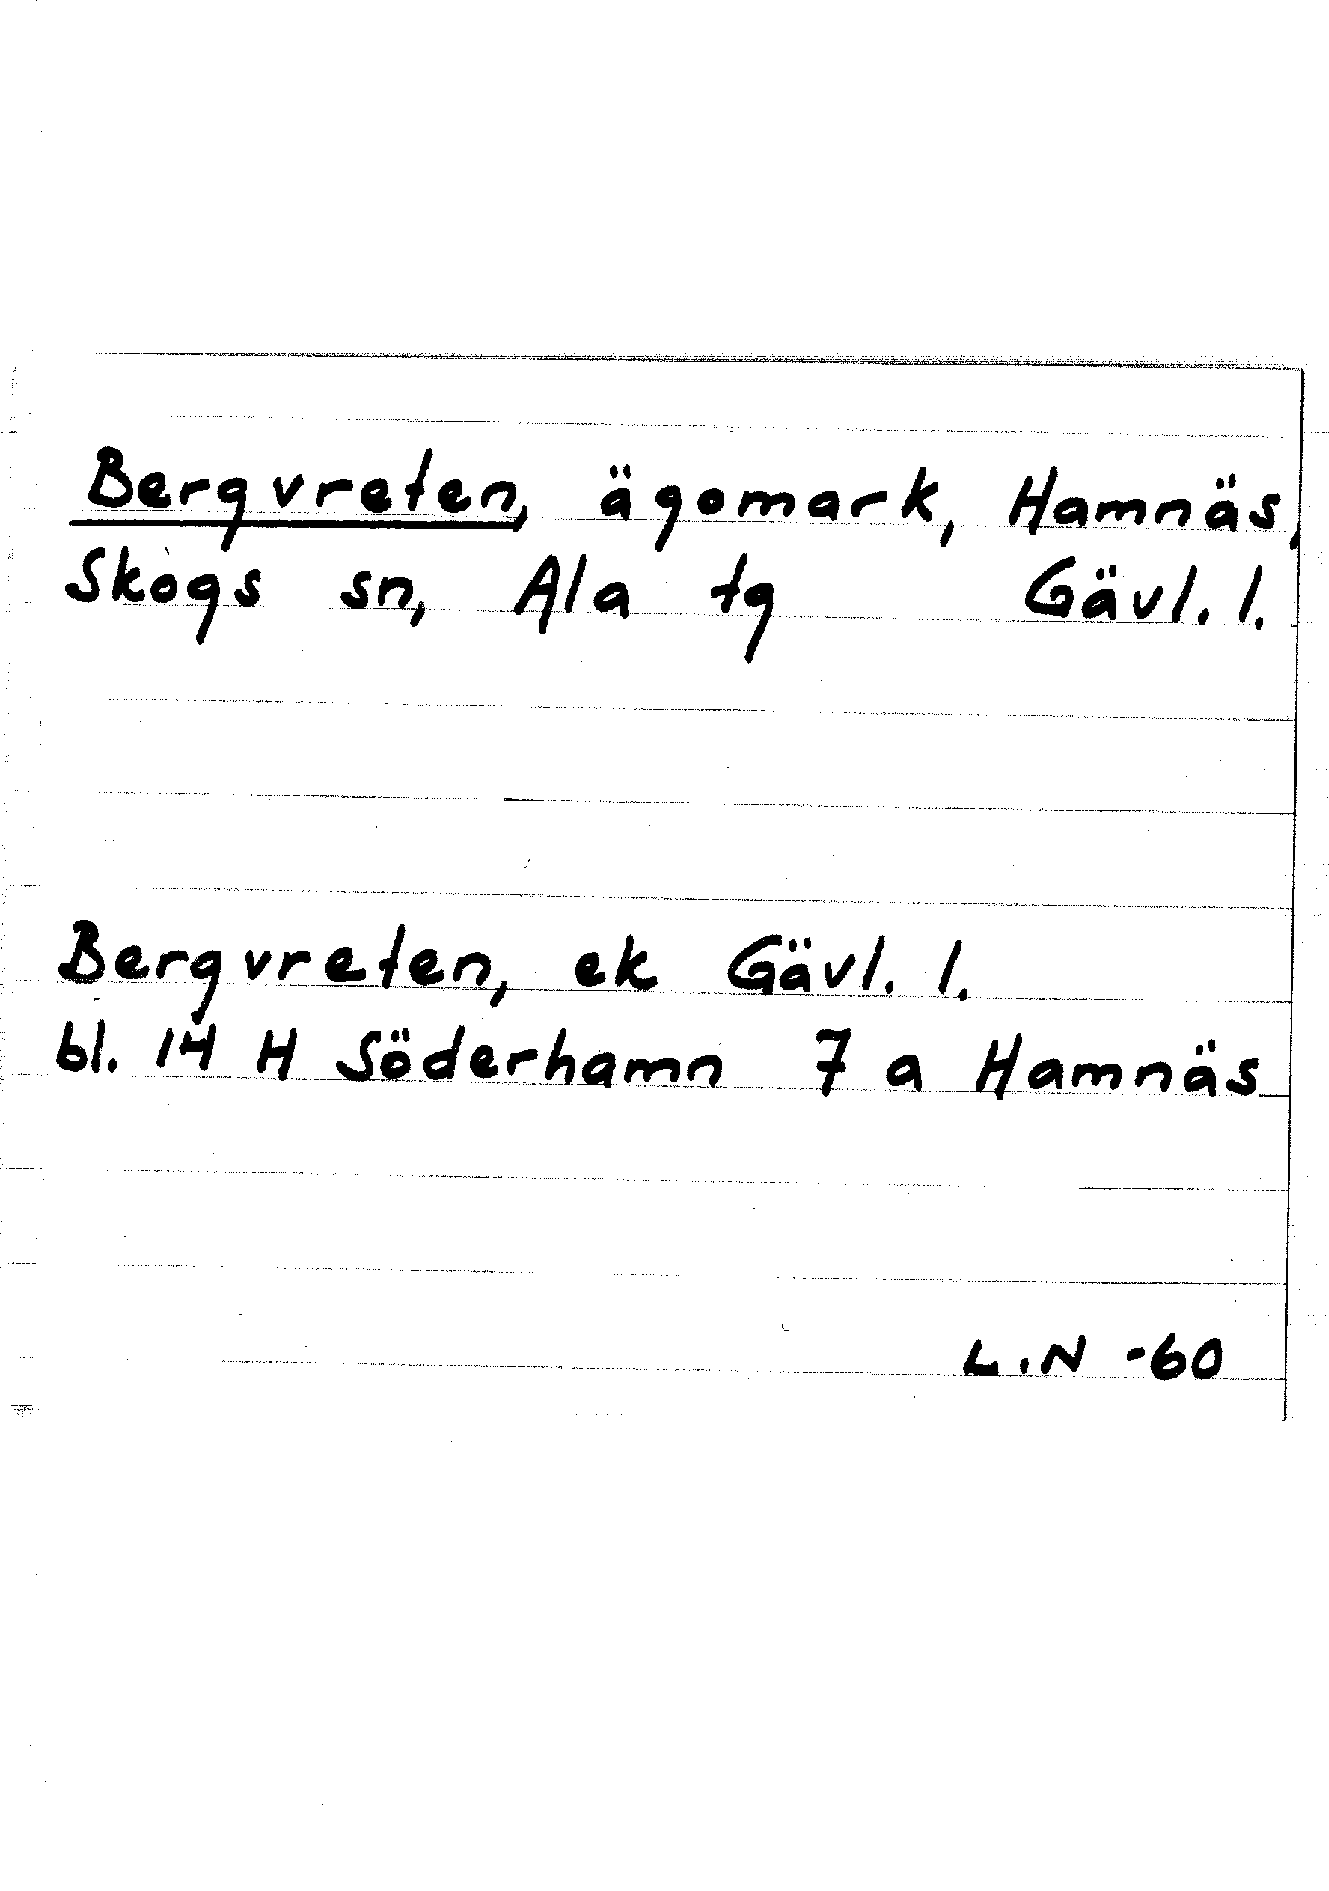 Bergvreten, ägomark, Hamnäs,
Skogs sn, Ala tg Gävl. l.
Bergvreten, ek Gävl. l.
bl. 14 H Söderhamn 7 a Hamnäs
L.N -60